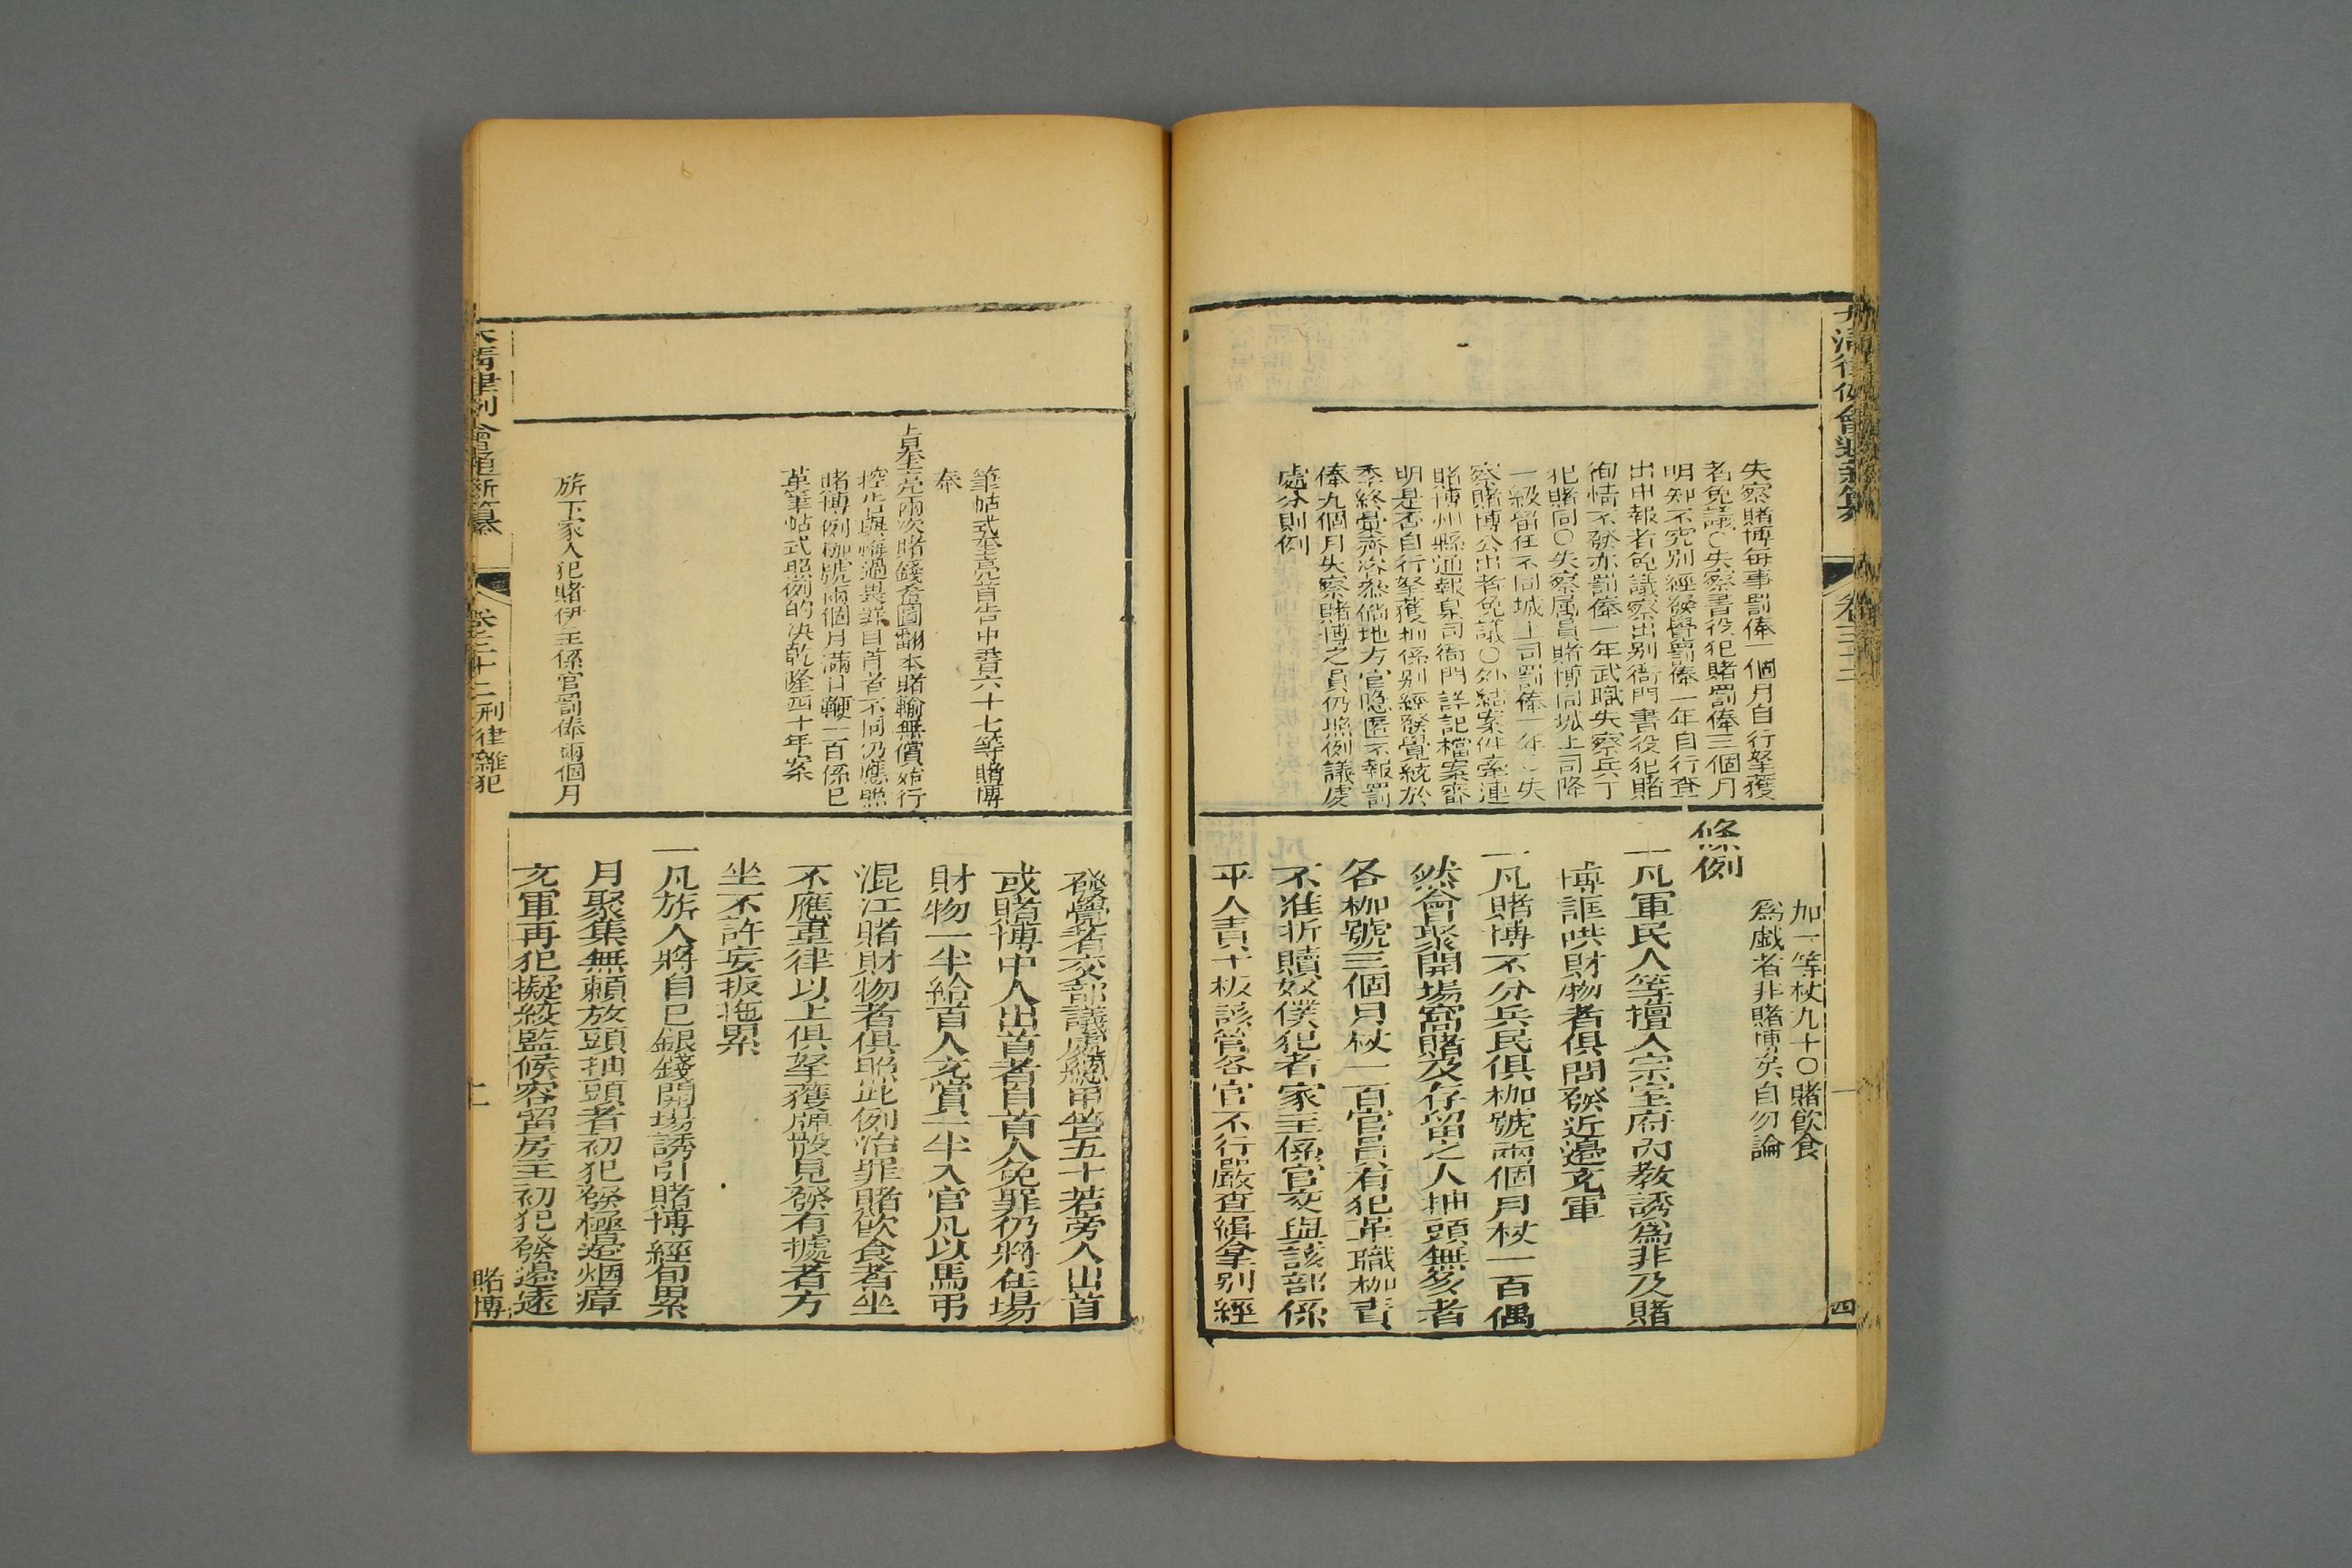 大清律例會通新纂
卷三十三
四
失察賭博每事罰俸一個月自行拏獲
者免議○失察書役犯賭罰俸三個月
明知不究別經發覺罰俸一年自行查
出申報者免議察出別衙門書役犯賭
徇情不發亦罰俸一年武職失察兵丁
犯賭同○失察属員賭博同城上司降
一級留任不同城上司罰俸一年○失
察賭博公出者免議○外結案件牽連
賭博州縣通報臬司衙門詳記檔案審
明是否自行拏獲抑係别經發覺統於
季終彙齊咨叅倘地方官隐匿不報罰
俸九個月失察賭博之員仍照例議處
處分則例
加一等杖九十○賭飲食
爲戯者非賭博矣自勿論
條例
一凡軍民人等擅入宗室府内教誘爲非及賭
博誆哄財物者俱問發近邉充軍
一凡賭博不分兵民俱枷號兩個月杖一百偶
然會聚開塲窩賭及存留之人抽頭無多者
各枷號三個月杖一百官員有犯革職枷責
不准折贖奴僕犯者家主係官交與該部係
平人責十板該管各官不行嚴查緝拿别經
筆帖式奎亮首告中書六十七等賭博
奉
上旨奎亮兩次賭錢希圖翻本賭輸無償始行
控告與悔過畏罪自首者不同仍應照
賭博例枷號兩個月滿日鞭一百係已
革筆帖式照例的决乾隆四十年案
旂下家人犯賭伊主係官罰俸兩個月
發覺者交部議處總甲笞五十若旁人出首
或賭博中人出首者自首人免罪仍將在塲
財物一半給首人充賞一半入官凡以馬弔
混江賭財物者俱照此例治罪賭飲食者坐
不應重律以上俱拏獲牌骰見發有據者方
坐不許妄扳拖累
一凡旂人將自已銀錢開塲誘引賭博經旬累
月聚集無賴放頭抽頭者初犯發極邉烟瘴
充軍再犯擬絞監候容留房主初犯發邉遠
大清律例會通新纂
卷三十二刑律雜犯
賭博